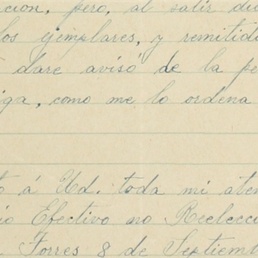 cion, pero, al salir du
los ejemplares, y remitid
dare avisó de la pe
iga, como me lo ordena
tó á Ud. toda mi aten
io Efectivo no Reelecci
Torres 8 de Septiemb